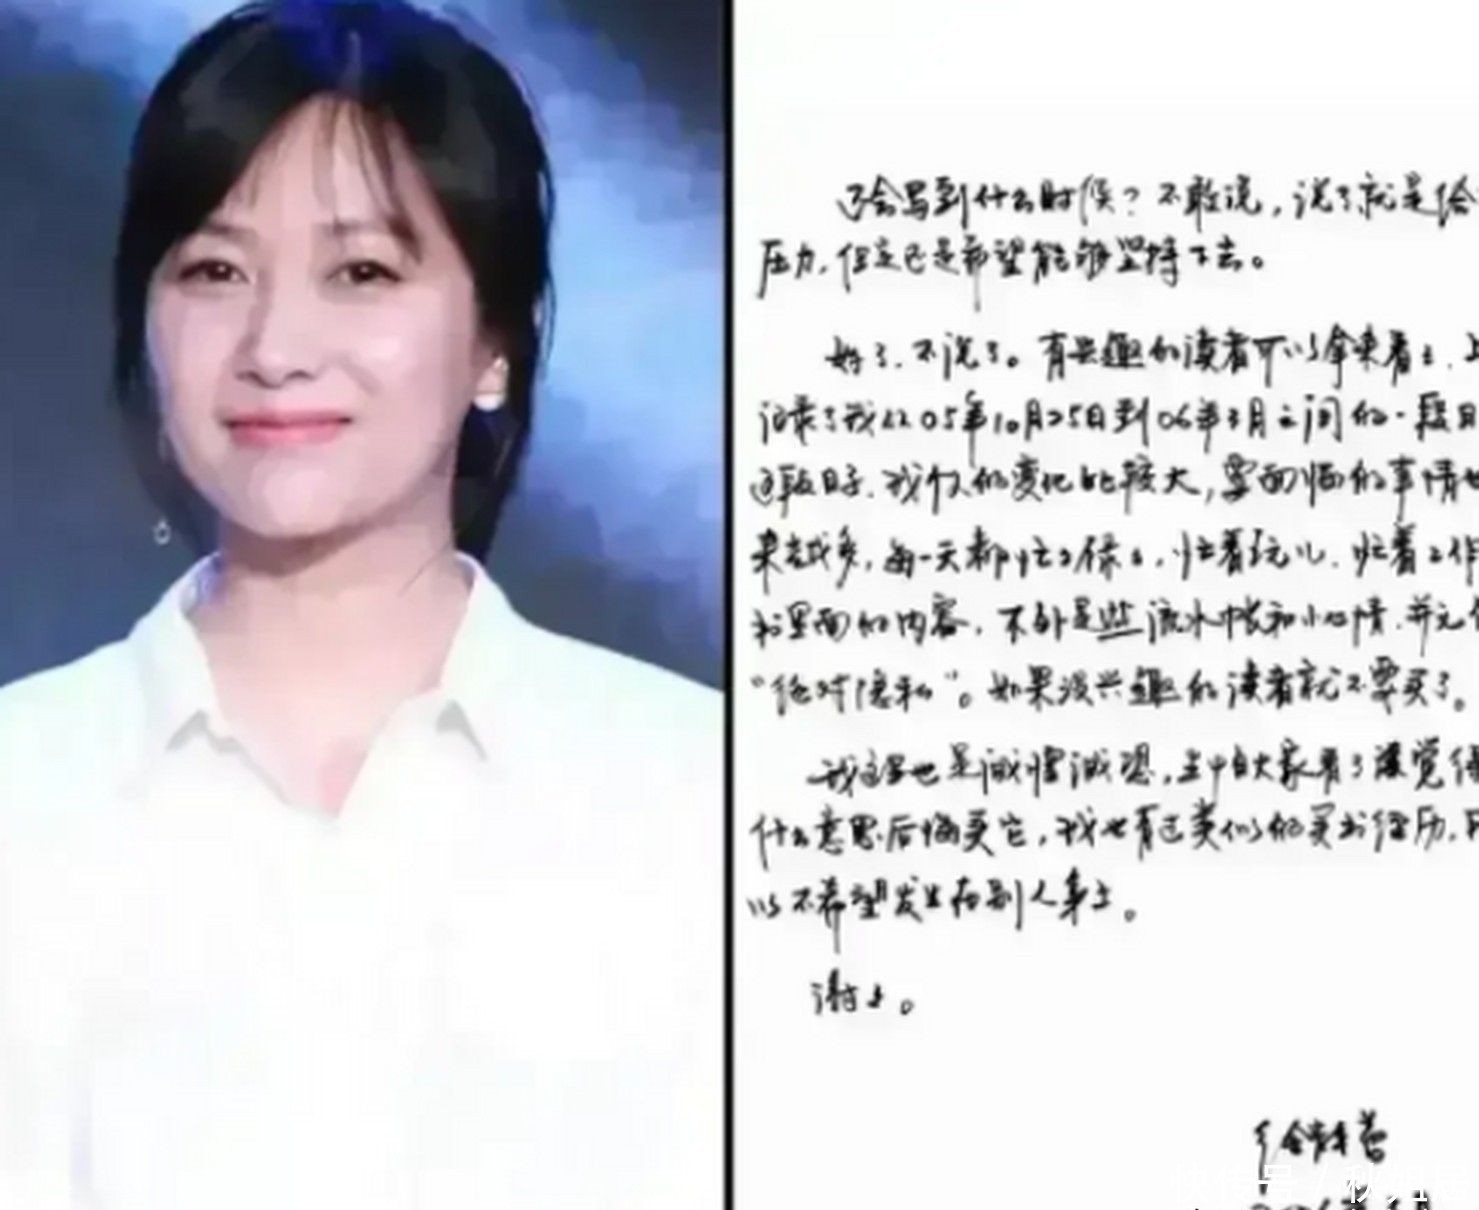 还会写到什么时候？不敢说，说了就是给
压力，但是还是希望能够坚持下去。
好了，不说了。有兴趣的读者可以拿来看看，
记录了我从05年10月25日到06年3月之间的一段日
这段日子，我们的变化比较大，要面临的事情也
来越多，每一天都忙忙碌碌，忙着玩儿，忙着工作
书里面的内容，不外是些流水帐和小心情，并无什
“绝对隐私”。如果没兴趣的读者就不要买了。
我这里也是诚惶诚恐，生怕大家看了感觉没
什么意思后悔买它，我也有过类似的买书经历，所
以不希望发生在别人身上。
谢谢。
徐静蕾